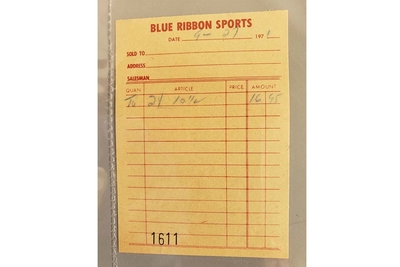 BLUE RIBBON SPORTS
DATE 9 - 21 1971
SOLD TO
ADDRESS
SALESMAN
QUAN. ARTICLE PRICE AMOUNT
21 10½ 16 95
1611